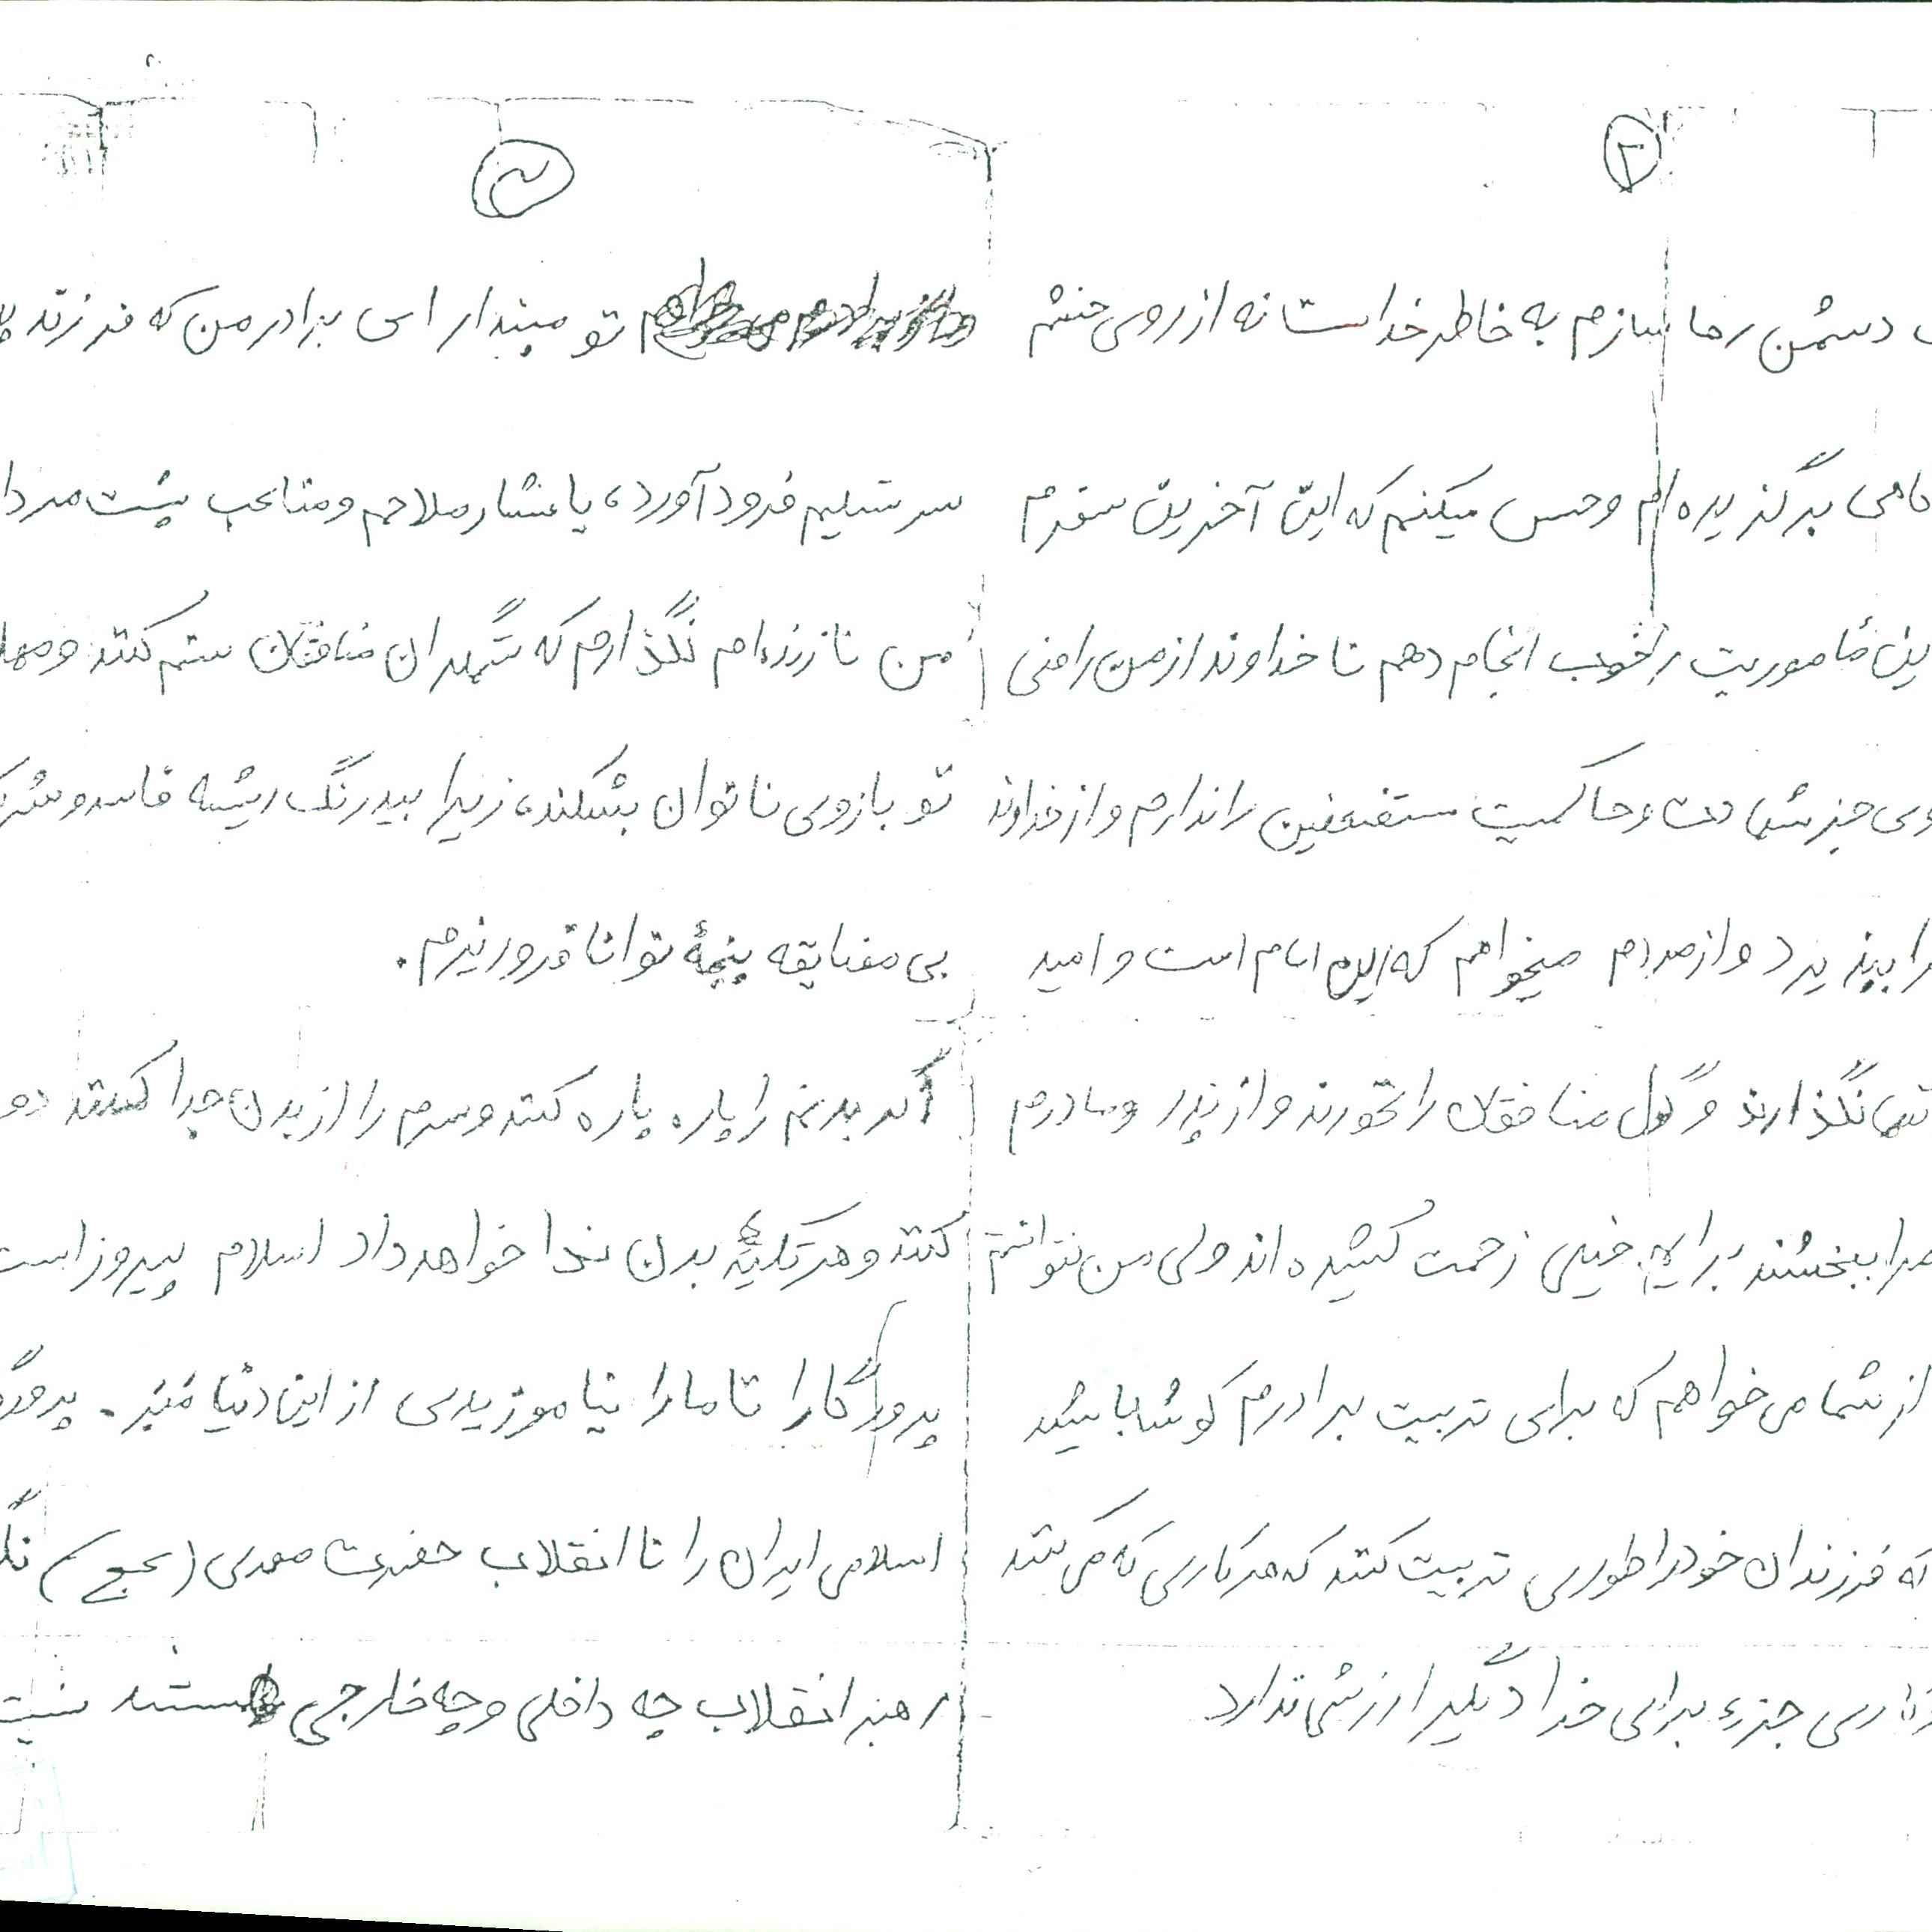 ۲
دشمن رها سازم به خاطر خداست نه از روی خشم
برگزیده ام و حس میکنم که این آخرین سفرم
ماموریت را خوب انجام دهم تا خداوند از من راضی
جز شهادت و حاکمیت مستضعفین را ندارم و از خداوند
بپذیرد و از مردم میخواهم که این امام است و امید
تنها نگذارند و گول منافقان را نخورند و از پدر و مادرم
مرا ببخشند برایم خیلی زحمت کشیده اند ولی من نتوانستم
از شما می خواهم که برای تربیت برادرم کوشا باشید
که فرزندان خود را طوری تربیت کنند که هر کاری که می کنند
جزء برای خدا دیگر ارزشی ندارد
۳
تو مپندار ای برادر من که فرزند
سر تسلیم فرود آورده یا عشار ملاحم و متاعب پشت مردا
من تا زنده ام نگذارم که ستمگران منافقان ستم کنند و
تو بازوی ناتوان بشکنند، زیرا بیدرنگ ریشه فاسد و
بی مضایقه پنجهٔ توانا فرو ریزم.
اگر بدنم را پاره پاره کنند و سرم را از بدن جدا کنند
کنند و هر تکهٔ بدن ندا خواهد داد اسلام پیروز است
پروردگارا تا ما را نیامرزیدی از این دنیا مبر.
اسلامی ایران را تا انقلاب حضرت مهدی (عج)
رهبر انقلاب چه داخلی و چه خارجی هستند